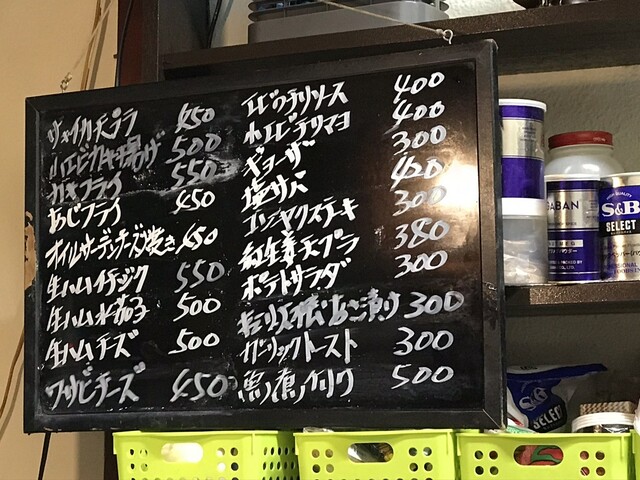 サイカ天プラ 450
小エビカキ揚げ 500
カキフライ 550
あじフライ 450
オイルサーデンチーズ焼き 450
生ハムイチジク 550
生ハム水茄子 500
生ハムチーズ 500
ワサビチーズ 450
エビチリソース 400
小エビチリマヨ 400
ギョーザ 300
塩サバ 420
コンニャクステーキ 300
紅生姜天プラ 380
ポテトサラダ 300
300
ガーリックトースト 300
500
ABAN
S&B
SELECT
SELECT